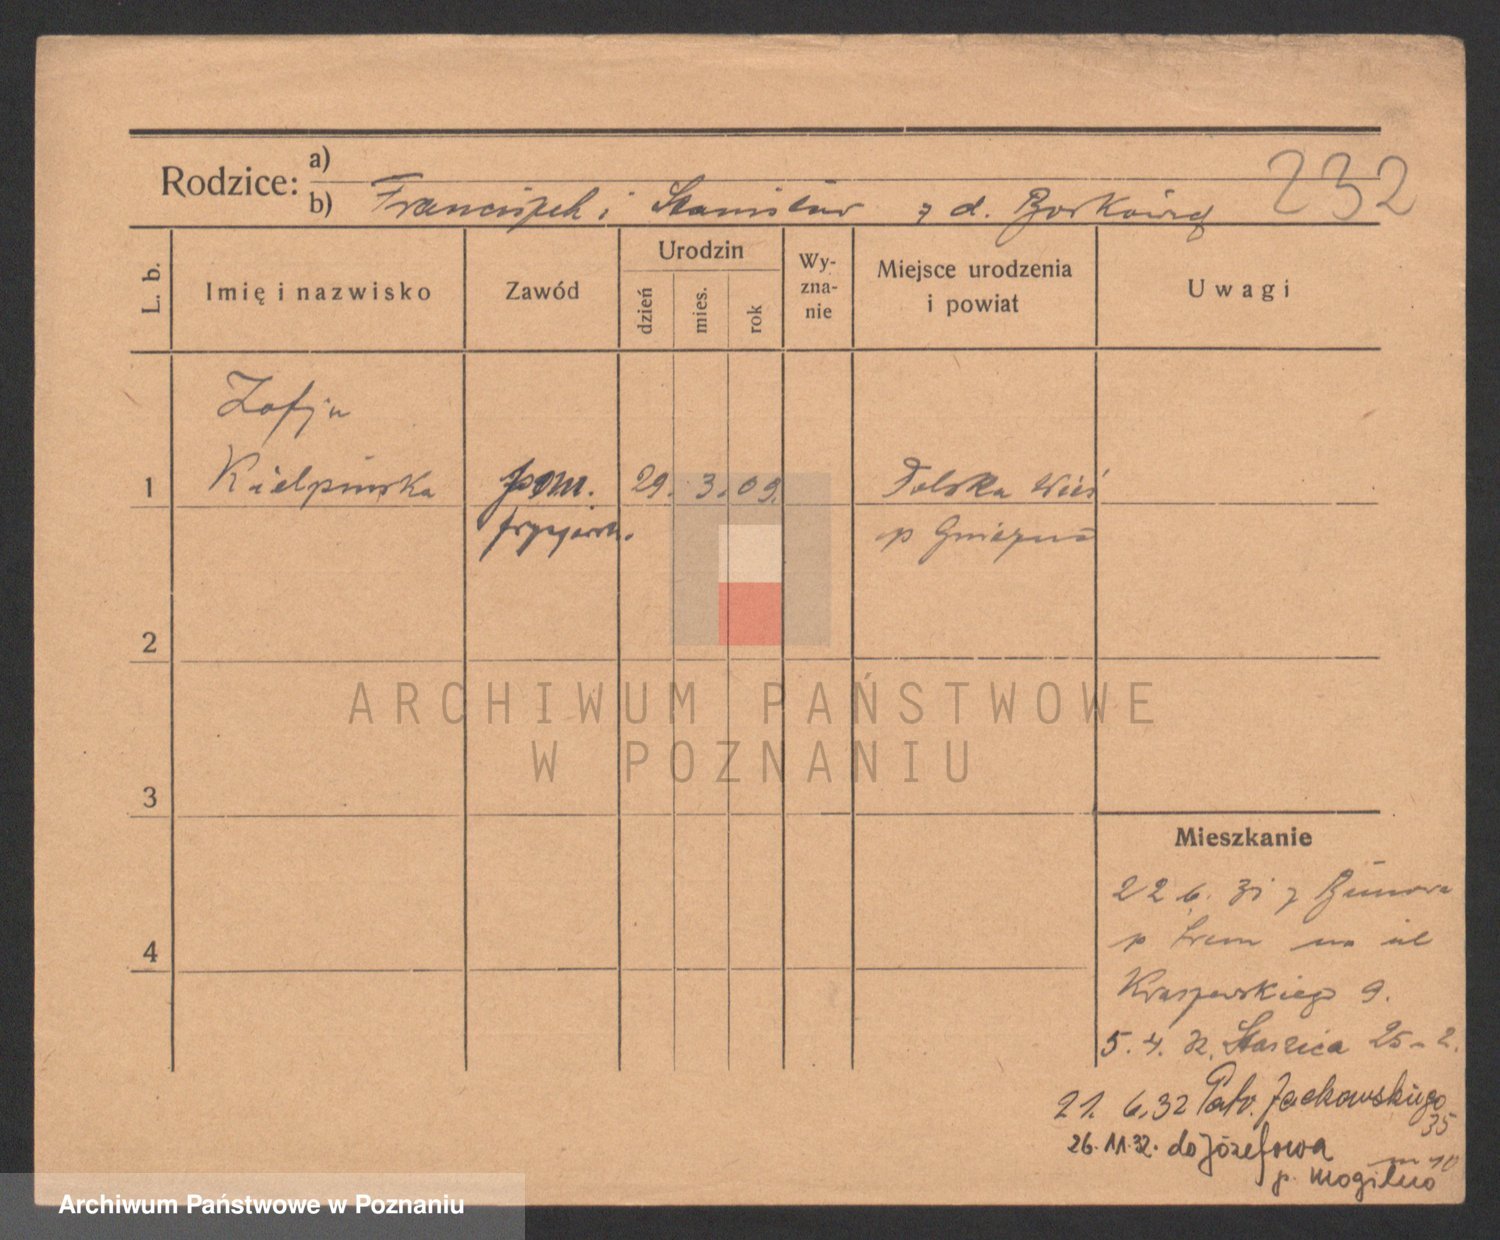 232
Rodzice: a)
b) Franciszek i Stanisław z d. Borkowską
L. b.
Imię i nazwisko
Zawód
Urodzin
dzień
mies.
rok
Wy-
zna-
nie
Miejsce urodzenia
i powiat
Uwagi
Zofja
1 Kielpińska pom. 29. 3. 09. Polska Wieś
fryzjersk. p Gniezno
2
ARCHIWUM PAŃSTWOWE
W POZNANIU
3
Mieszkanie
22 6. 31 z
p Śrem na ul
4
Kraszewskiego 9.
5. 4. 32. Staszica 25 - 2.
21. 6.32 Patr. Jackowskiego
35
m 10
26.11.32. do Józefowa
p. Mogilno
Archiwum Państwowe w Poznaniu